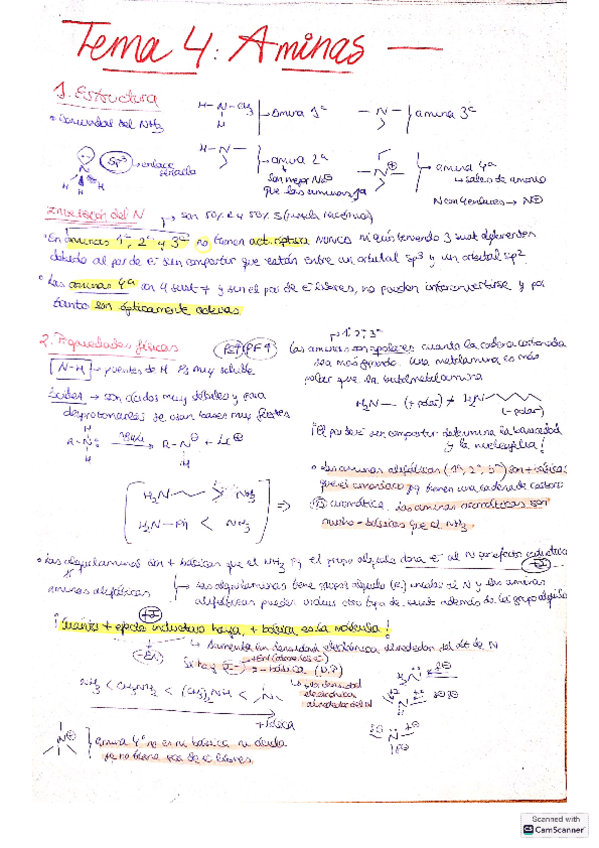 Tema 4: Aminas
1. Estructura
H-N-CH3
H
amina 1ª
-N-
amina 3ª
Derivadas del NH3
N
H H H
Sp3 → enlace
H-N-
amina 2ª
N⊕
amina 4ª
→ sales de amonio
N con 4 enlaces → N⊕
Inversión del N → son 50% R y 50% S (mezcla racémica)
En aminas 1ª, 2ª y 3ª no tienen act. óptica NUNCA ni aún teniendo 3 sust diferentes
debido al par de e- sin compartir que están entre un orbital sp3 y un orbital sp2
Las aminas 4ª con 4 sust ≠ y sin el par de e- libres, no pueden interconvertirse y por
tanto son ópticamente activas
2. Propiedades físicas
1ª, 2ª, 3ª
Las aminas son apolares cuanto la cadena carbonada
sea más grande. Una metilamina es más
polar que la butilmetilamina
N-H → puentes de H muy soluble
Ácidos → son ácidos muy débiles y para
desprotonarlos se usan bases muy fuertes
H2N- (+ polar) ≠ H2N
(- polar)
¡El par de e- sin compartir determina la basicidad
y la nucleofilia!
R-N
H
H
R-N⊖ + Li⊕
H
Las aminas alifáticas (1ª, 2ª, 3ª) son + básicas
que el amoniaco pq tienen una cadena carbono
aromática. Las aminas aromáticas son
mucho - básicas que el NH3.
H2N > NH3
H2N-Ph < NH3
=>
Las alquilaminas son + básicas que el NH3 pq el grupo alquilo dona e- al N por efecto inductivo
+I
aminas alifáticas
Las alquilaminas tiene grupos alquilo (R) unidos al N y las aminas
alifáticas pueden incluir otro tipo de sust además de los grupo alquilo
+I
¡Cuanto + efecto inductivo haya, + básica es la molécula!
→ Aumenta la densidad electrónica alrededor del át de N
NH3 < CH3NH2 < (CH3)2NH < N
densidad
electrónica
alrededor del N
+ básica
N⊕
amina 4ª no es ni básica ni ácida
pq no tiene par de e- libres.
Scanned with
CamScanner